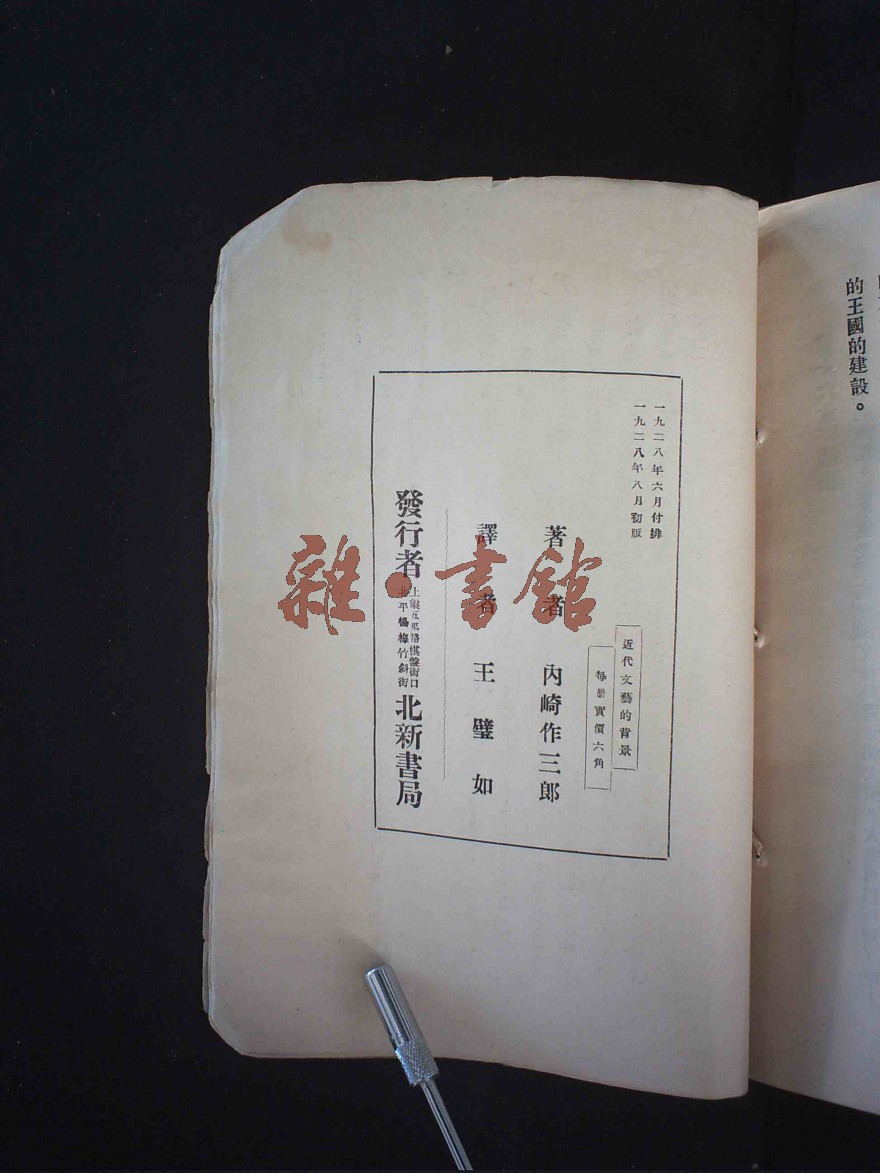 的王國的建設。
一九二八年六月付排
一九二八年八月初版
近代文藝的背景
每册實價六角
著者 內崎作三郎
譯者 王璧如
發行者 上海五馬路棋盤街口 北平楊梅竹斜街 北新書局
雜·書館